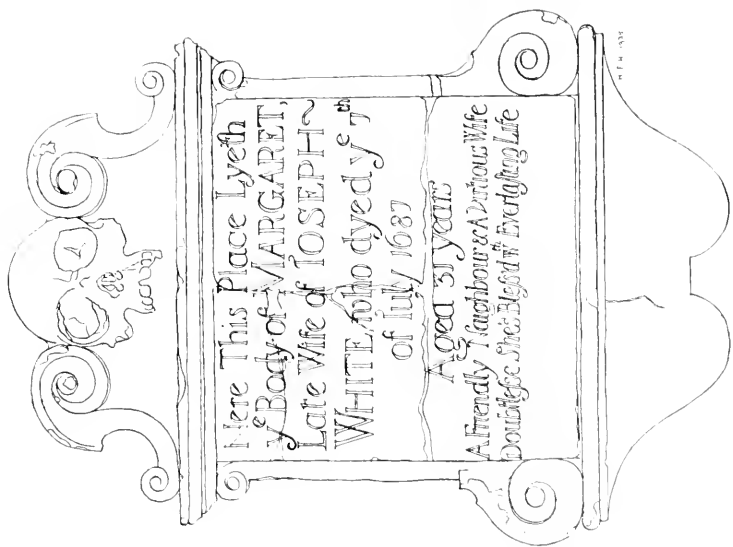 Here This Place Lyeth
yᵉ Body of MARGARET,
Late Wife of IOSEPH ~
WHITE, who dyed yᵉ 7ᵗʰ
of Iuly 1687
Aged 31 years
A Friendly Naighbour & A Virtuous Wife
Doubtleſse She's Bleſs'd wᵗʰ Everlaſting Life